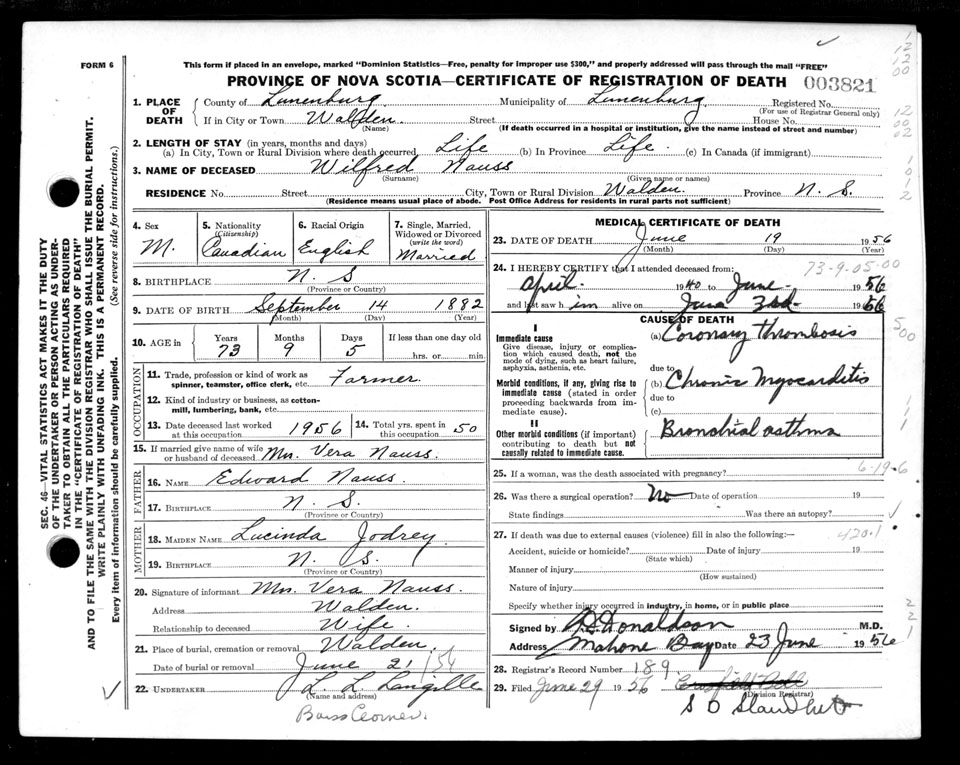 FORM 6
This form if placed in an envelope, marked "Dominion Statistics—Free, penalty for improper use $300," and properly addressed will pass through the mail "FREE"
PROVINCE OF NOVA SCOTIA—CERTIFICATE OF REGISTRATION OF DEATH 003821
1. PLACE OF DEATH County of Lunenburg Municipality of Lunenburg Registered No.
(For use of Registrar General only)
If in City or Town Walden. Street House No.
(Name) (If death occurred in a hospital or institution, give the name instead of street and number)
2. LENGTH OF STAY (in years, months and days)
(a) In City, Town or Rural Division where death occurred Life (b) In Province Life. (c) In Canada (if immigrant)
3. NAME OF DECEASED Wilfred Nauss
(Surname) (Given name or names)
RESIDENCE No. Street City, Town or Rural Division Walden. Province N. S.
(Residence means usual place of abode. Post Office Address for residents in rural parts not sufficient)
4. Sex M.
5. Nationality (Citizenship) Canadian
6. Racial Origin English
7. Single, Married, Widowed or Divorced (write the word) Married
8. BIRTHPLACE N. S
(Province or Country)
9. DATE OF BIRTH September 14 1882
(Month) (Day) (Year)
10. AGE in Years Months Days If less than one day old
73 9 5 hrs. or min.
OCCUPATION
11. Trade, profession or kind of work as spinner, teamster, office clerk, etc. Farmer.
12. Kind of industry or business, as cotton-mill, lumbering, bank, etc.
13. Date deceased last worked at this occupation 1956 14. Total yrs. spent in this occupation 50
15. If married give name of wife or husband of deceased Mrs. Vera Nauss.
FATHER
16. NAME Edward Nauss.
17. BIRTHPLACE N. S.
(Province or Country)
MOTHER
18. MAIDEN NAME Lucinda Jodrey.
19. BIRTHPLACE N. S.
(Province or Country)
20. Signature of informant Mrs. Vera Nauss.
Address Walden.
Relationship to deceased Wife.
21. Place of burial, cremation or removal Walden.
Date of burial or removal June 21/56
22. UNDERTAKER L. L. Langille
(Name and address)
Barss Corner.
MEDICAL CERTIFICATE OF DEATH
23. DATE OF DEATH June 19 1956
(Month) (Day) (Year)
73-9-05-00
24. I HEREBY CERTIFY that I attended deceased from:
April 1940 to June 1956
and last saw him alive on June 1956
CAUSE OF DEATH
I
Immediate cause (a) Coronary thrombosis
Give disease, injury or complication which caused death, not the mode of dying, such as heart failure, asphyxia, asthenia, etc.
due to
Morbid conditions, if any, giving rise to immediate cause (stated in order proceeding backwards from immediate cause). (b) Chronic Myocarditis
due to
(c)
II
Other morbid conditions (if important) contributing to death but not causally related to immediate cause. Bronchial asthma
25. If a woman, was the death associated with pregnancy? 6-19-6
26. Was there a surgical operation? No Date of operation 19
State findings Was there an autopsy?
27. If death was due to external causes (violence) fill in also the following:— 420.1
Accident, suicide or homicide? Date of injury 19
(State which)
Manner of injury
(How sustained)
Nature of injury
Specify whether injury occurred in industry, in home, or in public place
Signed by Donaldson M.D.
Address Mahone Bay Date 23 June 1956
28. Registrar's Record Number 189
29. Filed June 29 1956
(Division Registrar)
SEC. 46—VITAL STATISTICS ACT MAKES IT THE DUTY
OF THE UNDERTAKER OR PERSON ACTING AS UNDERTAKER TO OBTAIN ALL THE PARTICULARS REQUIRED
IN THE "CERTIFICATE OF REGISTRATION OF DEATH"
AND TO FILE THE SAME WITH THE DIVISION REGISTRAR WHO SHALL ISSUE THE BURIAL PERMIT.
WRITE PLAINLY WITH UNFADING INK. THIS IS A PERMANENT RECORD.
Every item of information should be carefully supplied. (See reverse side for instructions.)